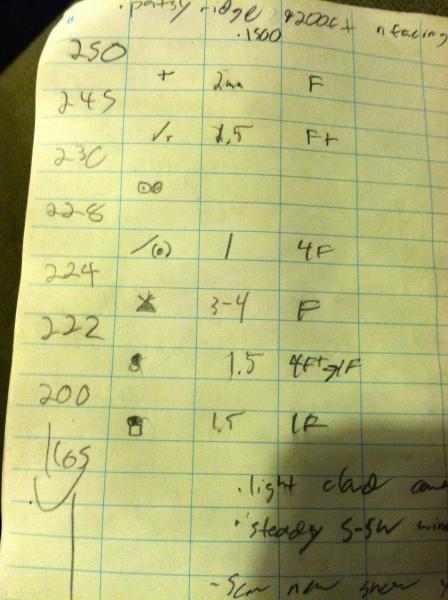 . patsy ridge 4200ft n facing
.1500
250
+ 2mm F
245
/. 1.5 F+
230
∞
228
/(•) 1 4F
224
3-4 F
222
1.5 4F+→1F
200
1.5 1F
165
.light cloud
. steady S-SW win
- 5cm new snow